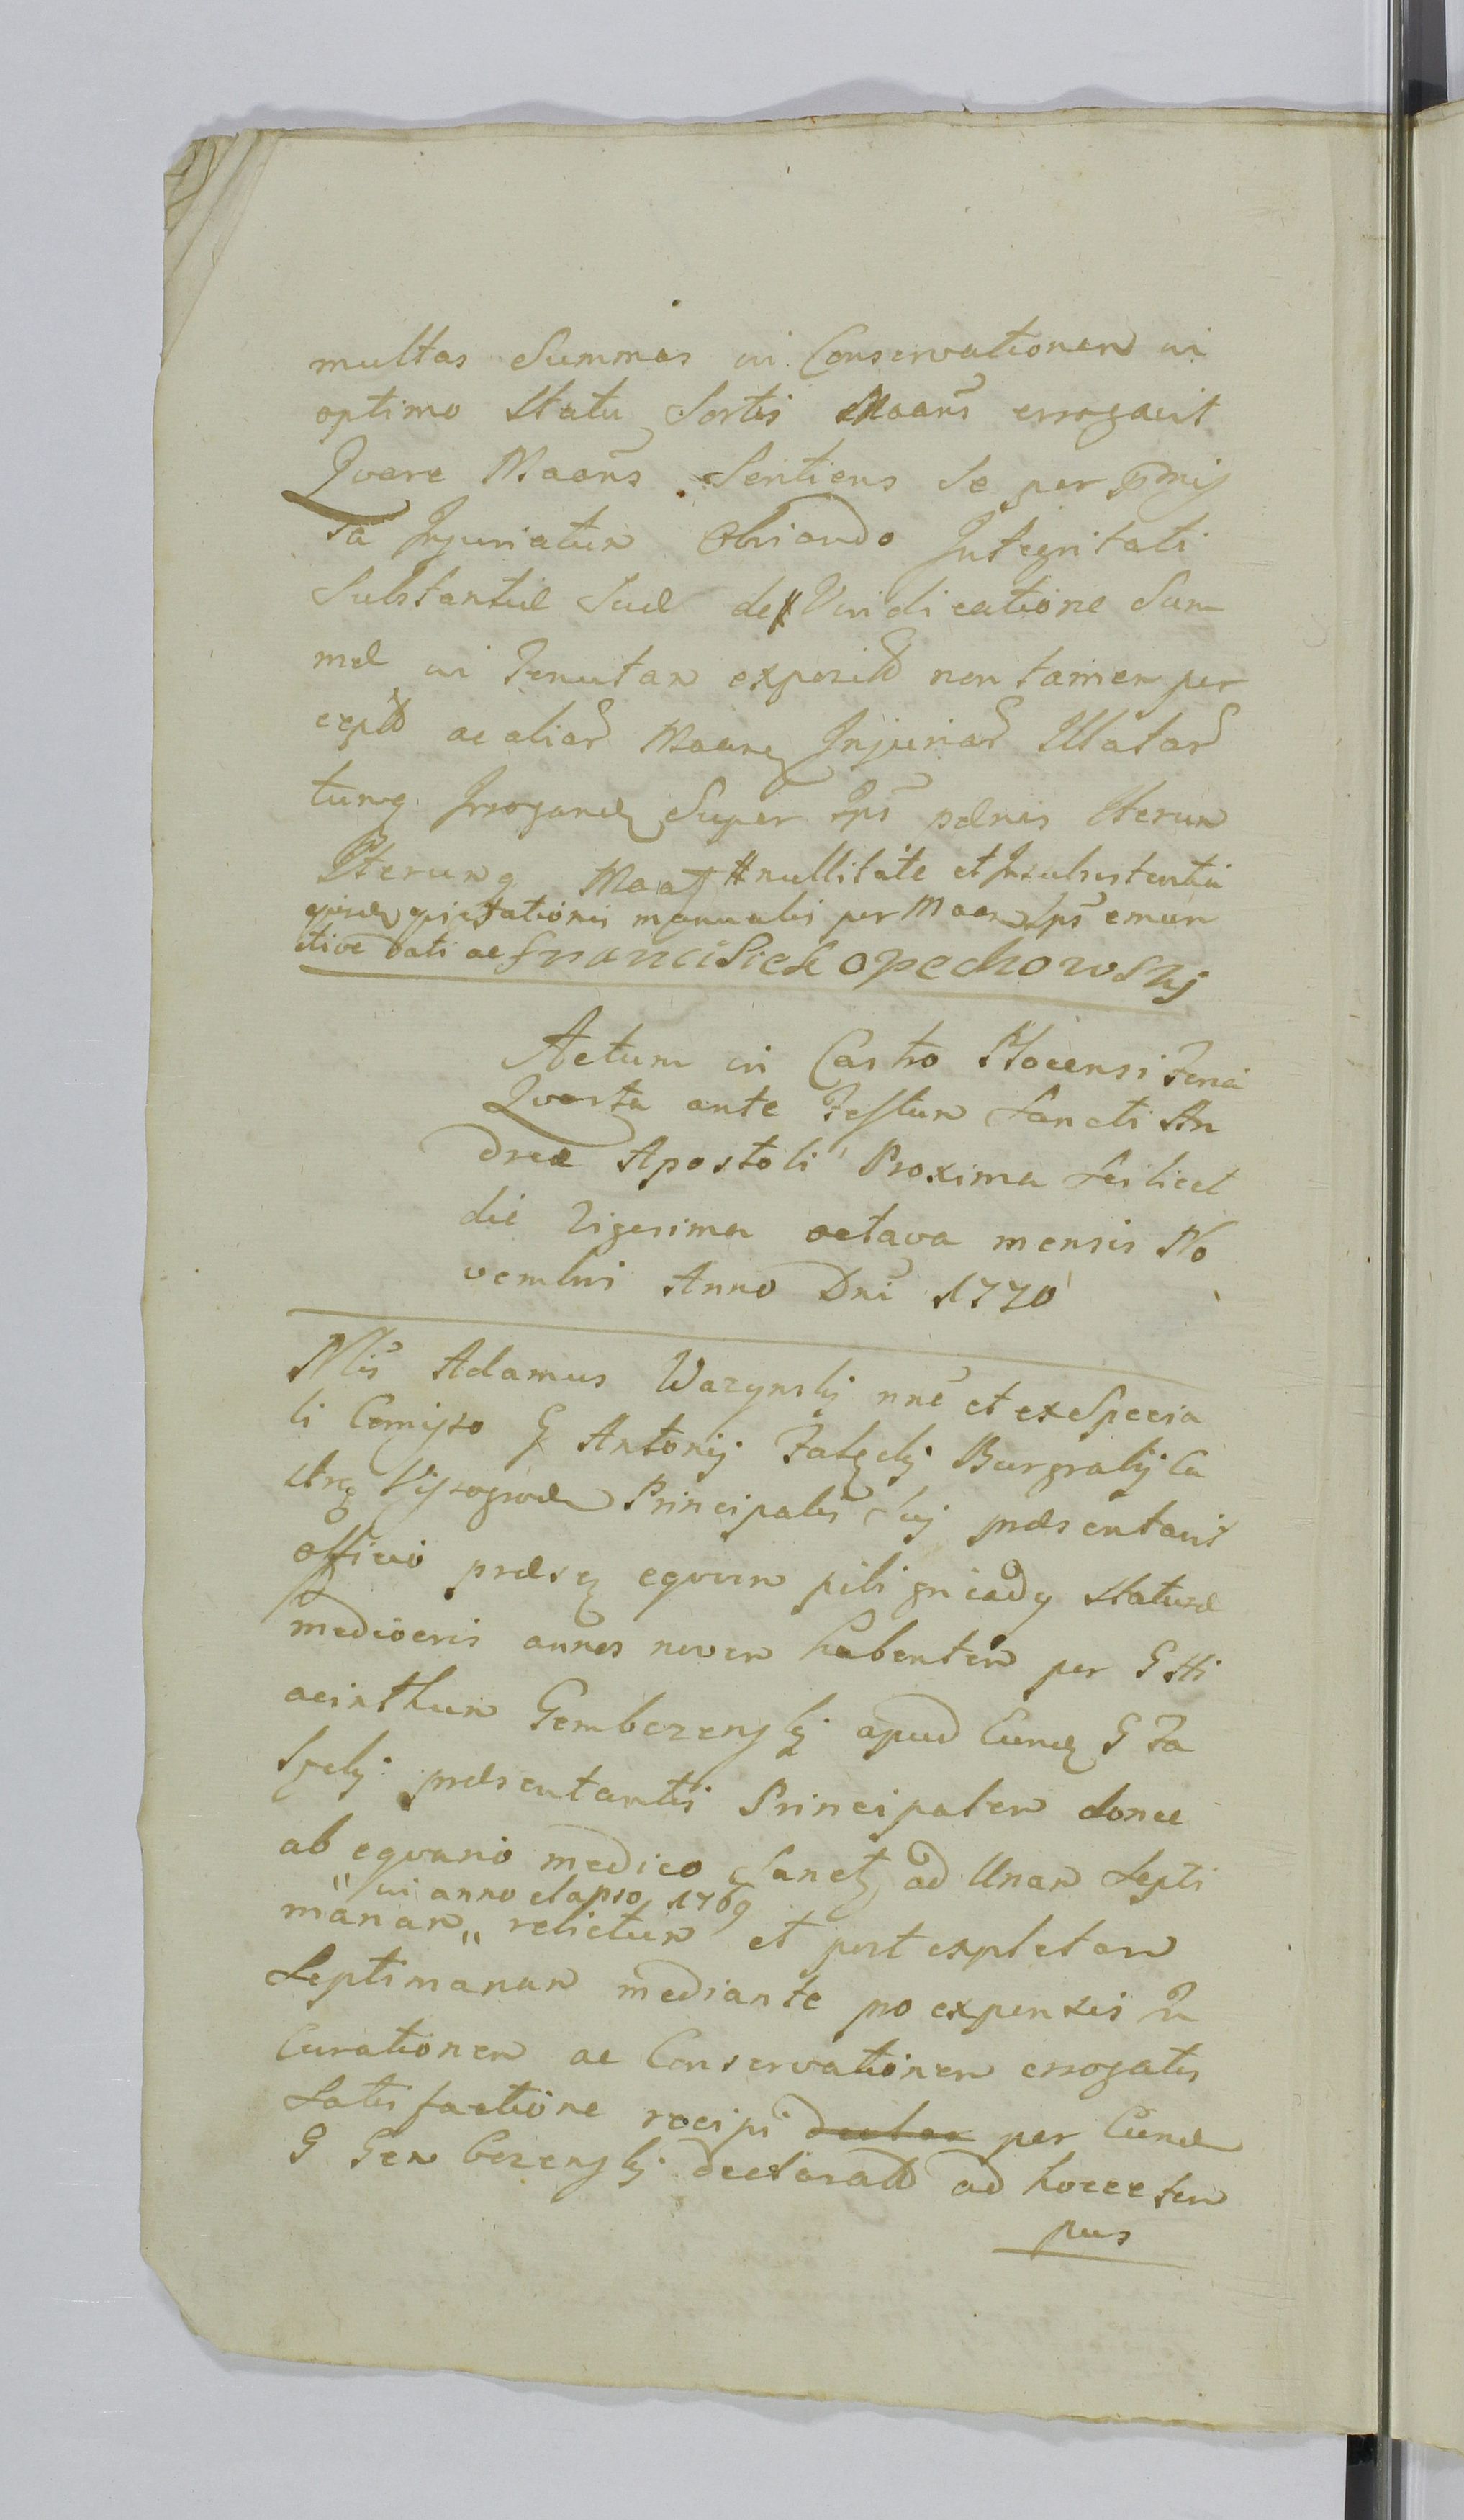 multas Summas in Conservationem in
optimo Statu Sortis Maans errogavit
Qvare Maans Sentiens se per pmis
sa Injuriatum Obviando Integritati
Substantiæ Suæ de # Vindicatione Sum
mæ in Tenutam expositæ non tamen per
ceptæ ac aliar Injuriar Illatar
tumq Irrogand Super Ips pænis Iterum
Iterumq Maat # nullitate et Insubsistentia
qvietationis manualis per Maan Ips
dati ac franciszek opechowskj
Actum in Castro Plocensi Feria
Qvarta ante Festum Sancti An
dreæ Apostoli Proxima Scilicet
die Vigesima octava mensis No
vembris Anno Dni 1770
Nlis Adamus Wazynskj nne et ex Specia
li Comisso G Antonij Falęckj Burgrabij Ca
Principalis Sui præsentavit
officio præsę eqvum pili gniady Staturæ
mediocris annos novem habentem per G Hi
acinthum Gembarzewskj apud Eund G Fa
lęckj præsentantis Principalem donec
ab eqvario medico Sanet ad Unam Septi
" in anno elapso 1769
manam " relictum et post expletam
Septimanam mediante pro expensis in
Curationem ac Conservationem errogatis
Satisfactione recipi declar per Eund
G Gembarzewskj declarat ad hocce tem
pus